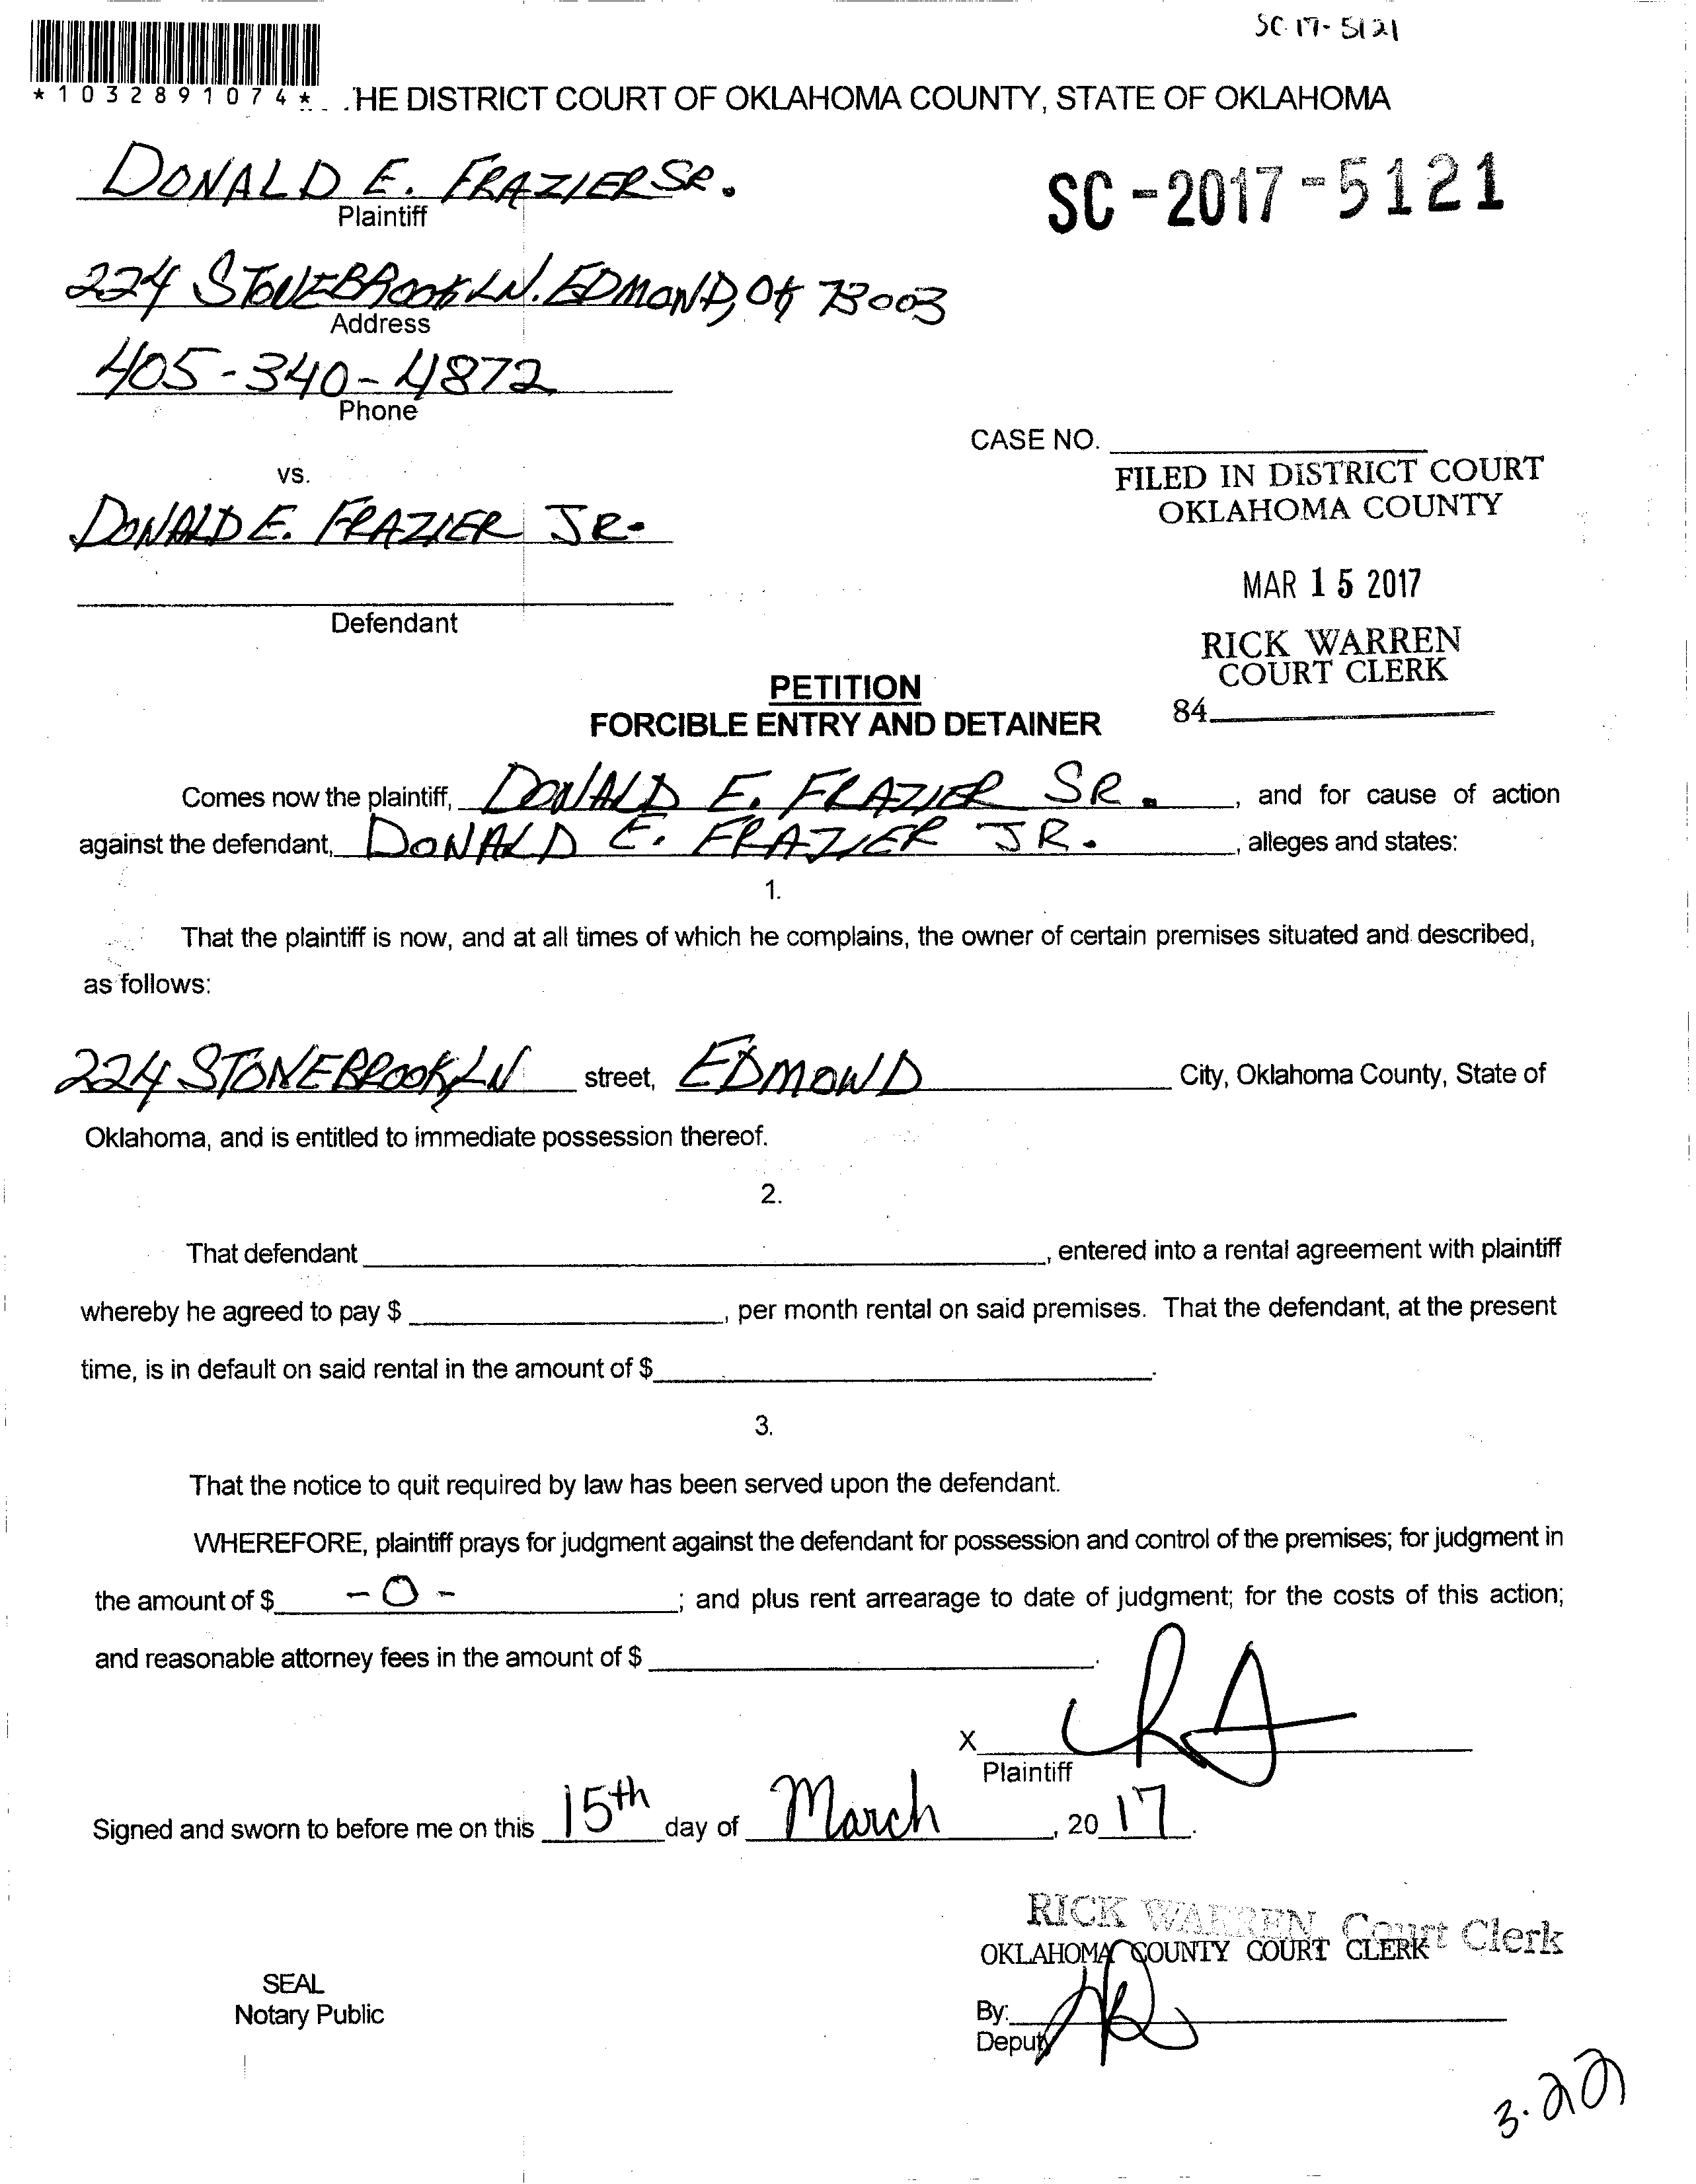 SC-17-5121
*1032891074*
HE DISTRICT COURT OF OKLAHOMA COUNTY, STATE OF OKLAHOMA
DONALD E. FRAZIER SR.
Plaintiff
SC-2017-5121
224 STONEBROOK LN. EDMOND, OK 73003
Address
405-340-4872
Phone
CASE NO.
vs.
FILED IN DISTRICT COURT
OKLAHOMA COUNTY
DONALD E. FRAZIER JR.
MAR 15 2017
Defendant
RICK WARREN
COURT CLERK
84
PETITION
FORCIBLE ENTRY AND DETAINER
Comes now the plaintiff, DONALD E. FRAZIER SR., and for cause of action
against the defendant, DONALD E. FRAZIER JR., alleges and states:
1.
That the plaintiff is now, and at all times of which he complains, the owner of certain premises situated and described,
as follows:
224 STONEBROOK LN street, EDMOND City, Oklahoma County, State of
Oklahoma, and is entitled to immediate possession thereof.
2.
That defendant , entered into a rental agreement with plaintiff
whereby he agreed to pay $ , per month rental on said premises. That the defendant, at the present
time, is in default on said rental in the amount of $ .
3.
That the notice to quit required by law has been served upon the defendant.
WHEREFORE, plaintiff prays for judgment against the defendant for possession and control of the premises; for judgment in
the amount of $ -0- ; and plus rent arrearage to date of judgment; for the costs of this action;
and reasonable attorney fees in the amount of $ .
X
Plaintiff
Signed and sworn to before me on this 15th day of March, 2017.
RICK WARREN, Court Clerk
OKLAHOMA COUNTY COURT CLERK
SEAL
Notary Public
By:
Deputy
3.22